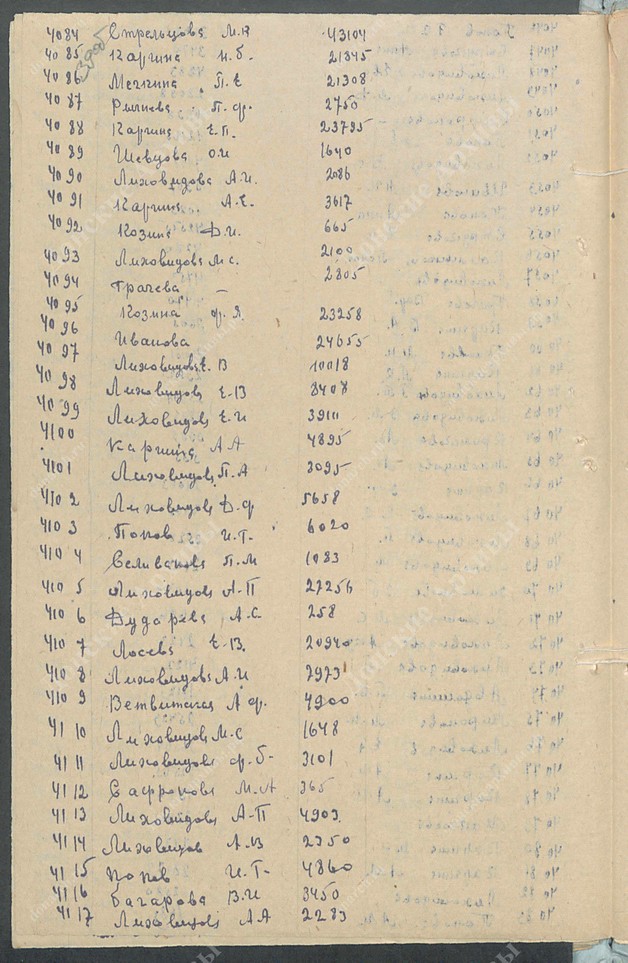 4084 Стрельцова М.В 43104
4085 Каргина Н.б. 21345
4086 Мечкина П.Е 21308
4087 П.ф. 2750
4088 Каргина Е.П. 23795
4089 Шевцова О.И 1640
4090 Лиховидова А.И. 2086
4091 Каргина А.Е. 3617
4092 Козина Ф.И. 665
4093 Лиховидова М.С. 2100
4094 Грачева — 2805
4095 Козина ф.Я. 23258
4096 Иванова 24655
4097 Лиховидова Е.В 10018
4098 Лиховидова Е.В 8408
4099 Лиховидова Е.И 39111
4100 Каргина А А 4895
4101 Лиховидова П.А 3095
4102 Лиховидова Д.ф 5658
4103 Попов И.Т. 6020
4104 Селиванова П.М 1083
4105 Лиховидова А.П 27256
4106 Дударева А.С. 258
4107 Лосева Е.В. 20940
4108 Лиховидова А.И 2973
4109 А ф. 4900
4110 Лиховидова М.С 1648
4111 Лиховидова ф.б. 3101
4112 Сафронова М.А 365
4113 Лиховидова А-П 4903
4114 Лиховидов А.В 2350
4115 Попов И.Т. 4860
4116 Багарова В.И 3450
4117 Лиховидова А А 2283